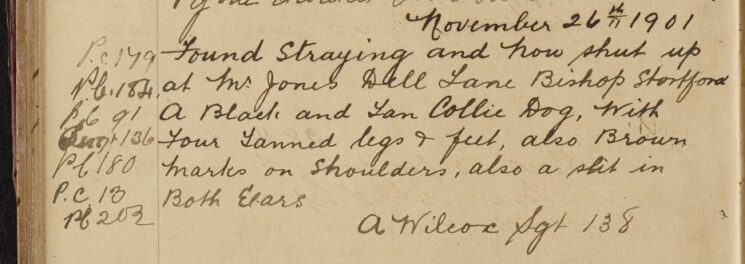 November 26th 1901
P.c 179 Found Straying and now shut up
P.C. 184 at Mr Jones Dell Lane Bishop Stortford
P.C 91 A Black and Tan Collie Dog, With
136 Four Tanned legs & feet, also Brown
P.C 180 Marks on Shoulders, also a slit in
P.C. 13 Both Ears
P.C 203
A Wilcox Sgt 138